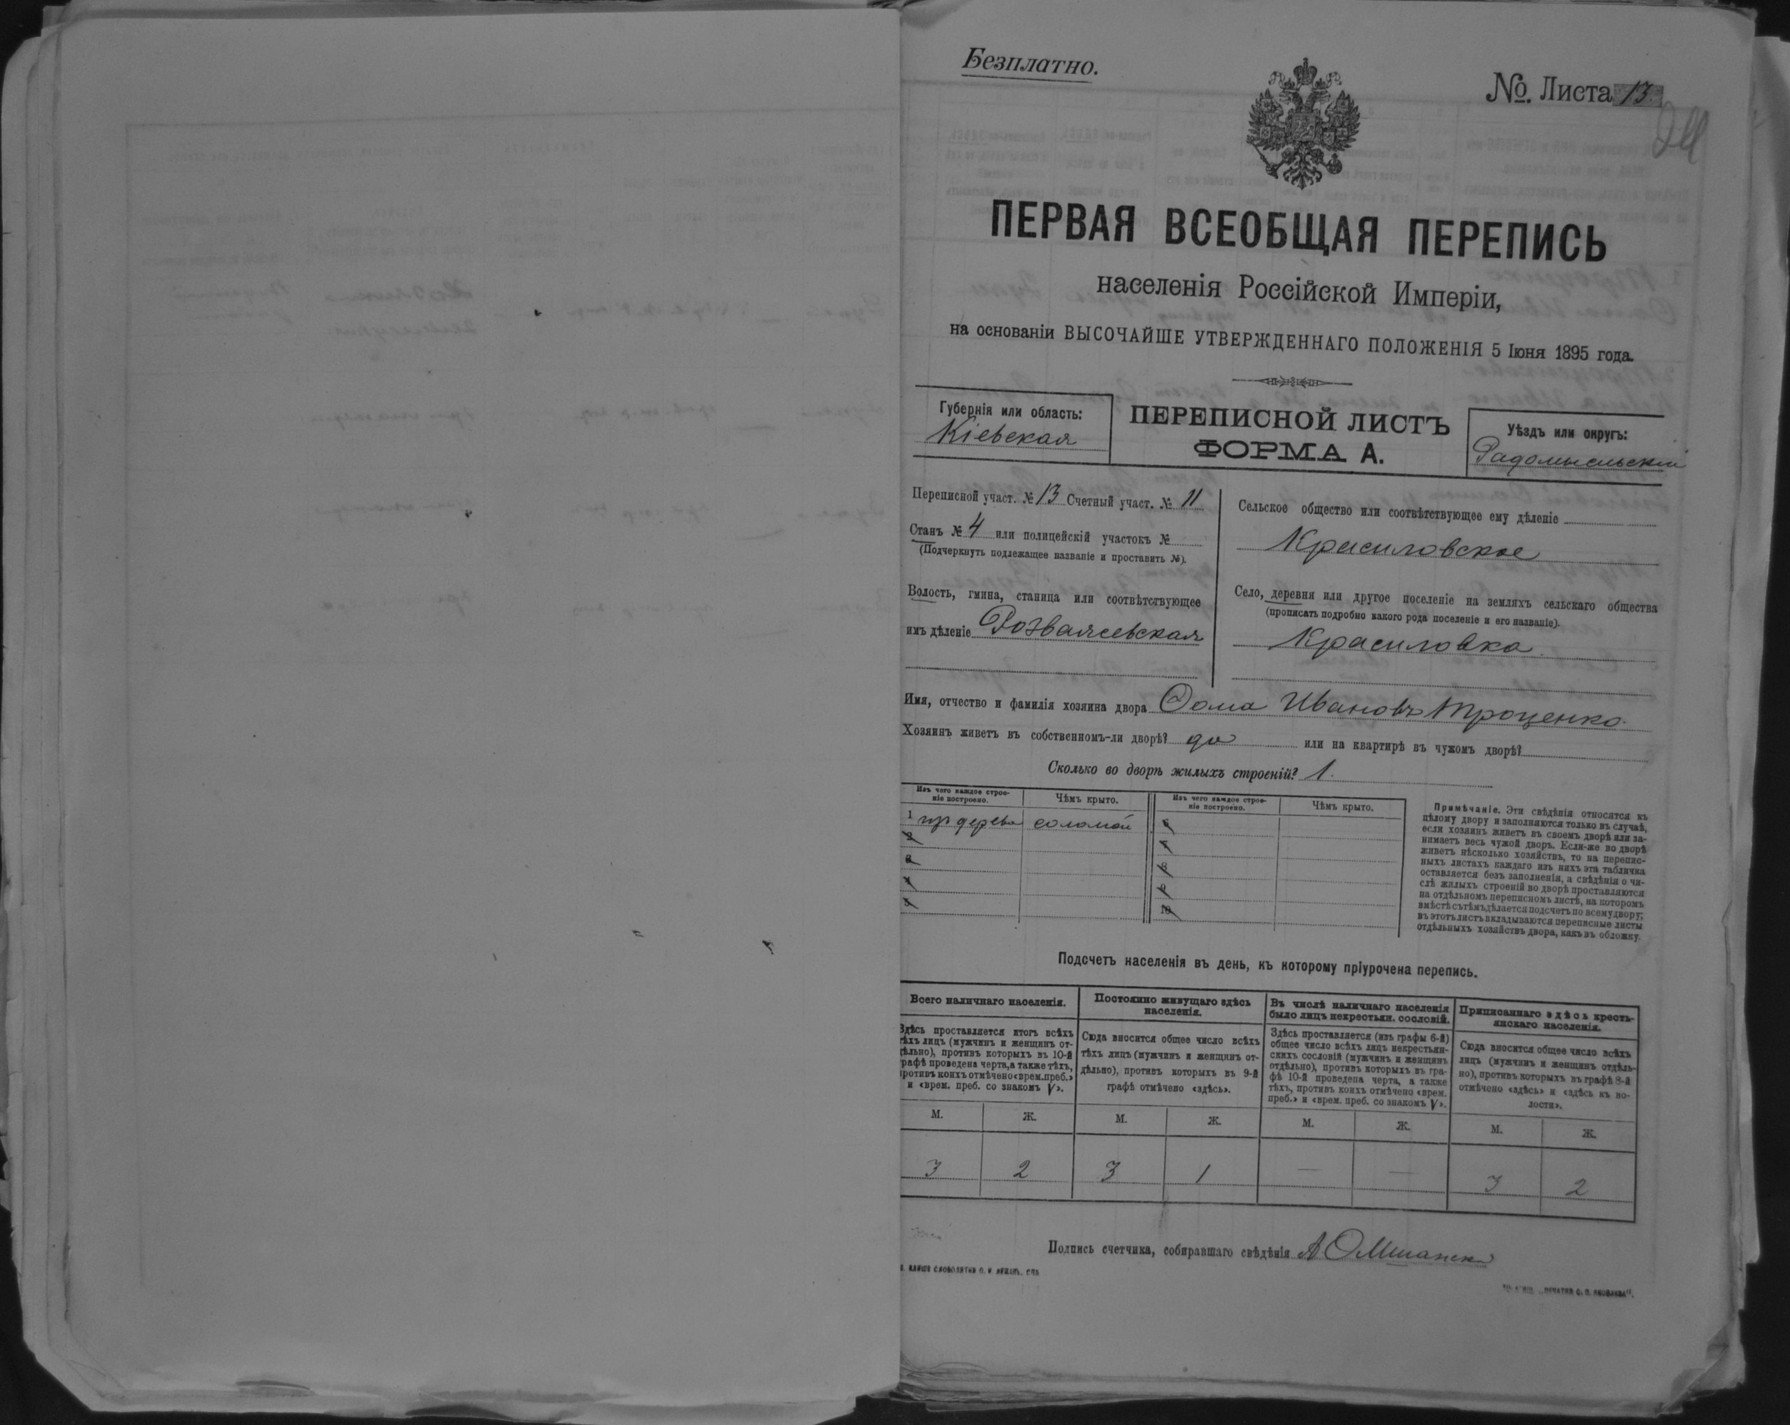 Безплатно.
№. Листа 13
ПЕРВАЯ ВСЕОБЩАЯ ПЕРЕПИСЬ
населенія Россійской Имперіи,
на основаніи ВЫСОЧАЙШЕ УТВЕРЖДЕННАГО ПОЛОЖЕНІЯ 5 Іюня 1895 года.
Губернія или область:
Кіевская
ПЕРЕПИСНОЙ ЛИСТЪ
ФОРМА А.
Уѣздъ или округъ:
Радомысльскій
Переписной участ. № 13 Счетный участ. № 11
Станъ № 4 или полицейскій участокъ №
(Подчеркнуть подлежащее названіе и проставить №).
Волость, гмина, станица или соотвѣтствующее
имъ дѣленіе Розважевская
Сельское общество или соотвѣтствующее ему дѣленіе
Красиловское
Село, деревня или другое поселеніе на земляхъ сельскаго общества
(прописать подробно какого рода поселеніе и его названіе).
Красиловка.
Имя, отчество и фамилія хозяина двора Ѳома Ивановъ Троценко.
Хозяинъ живетъ въ собственномъ-ли дворѣ? да или на квартирѣ въ чужомъ дворѣ?
Сколько во дворѣ жилыхъ строеній? 1.
Изъ чего каждое строе-
ніе построено.
Чѣмъ крыто.
Изъ чего каждое строе-
ніе построено.
Чѣмъ крыто.
1 изъ дерева соломой 6
2 7
3 8
4 9
5 10
Примѣчаніе. Эти свѣдѣнія относятся къ
цѣлому двору и заполняются только въ случаѣ,
если хозяинъ живетъ въ своемъ дворѣ или за-
нимаетъ весь чужой дворъ. Если-же во дворѣ
живетъ нѣсколько хозяйствъ, то на перепис-
ныхъ листахъ каждаго изъ нихъ эта табличка
оставляется безъ заполненія, а свѣдѣнія о чи-
слѣ жилыхъ строеній во дворѣ проставляются
на отдѣльномъ переписномъ листѣ, на которомъ
вмѣстѣ съ тѣмъ дѣлается подсчетъ по всему двору;
въ этотъ листъ вкладываются переписные листы
отдѣльныхъ хозяйствъ двора, какъ въ обложку.
Подсчетъ населенія въ день, къ которому пріурочена перепись.
Всего наличнаго населенія.
Здѣсь проставляется итогъ всѣхъ
тѣхъ лицъ (мужчинъ и женщинъ от-
дѣльно), противъ которыхъ въ 10-й
графѣ проведена черта, а также тѣхъ,
противъ коихъ отмѣчено «врем. преб.»
и «врем. преб. со знакомъ V».
Постоянно живущаго здѣсь
населенія.
Сюда вносится общее число всѣхъ
тѣхъ лицъ (мужчинъ и женщинъ от-
дѣльно), противъ которыхъ въ 9-й
графѣ отмѣчено «здѣсь».
Въ числѣ наличнаго населенія
было лицъ некрестьян. сословій.
Здѣсь проставляется (изъ графы 6-й)
общее число всѣхъ лицъ некрестьян-
скихъ сословій (мужчинъ и женщинъ
отдѣльно), противъ которыхъ въ гра-
фѣ 10-й проведена черта, а также
тѣхъ, противъ коихъ отмѣчено «врем.
преб.» и «врем. преб. со знакомъ V».
Приписаннаго здѣсь кресть-
янскаго населенія.
Сюда вносится общее число всѣхъ
лицъ (мужчинъ и женщинъ отдѣль-
но), противъ которыхъ въ графѣ 8-й
отмѣчено «здѣсь» и «здѣсь въ во-
лости».
М. Ж. М. Ж. М. Ж. М. Ж.
3 2 3 1 — — 3 2
Подпись счетчика, собиравшаго свѣдѣнія